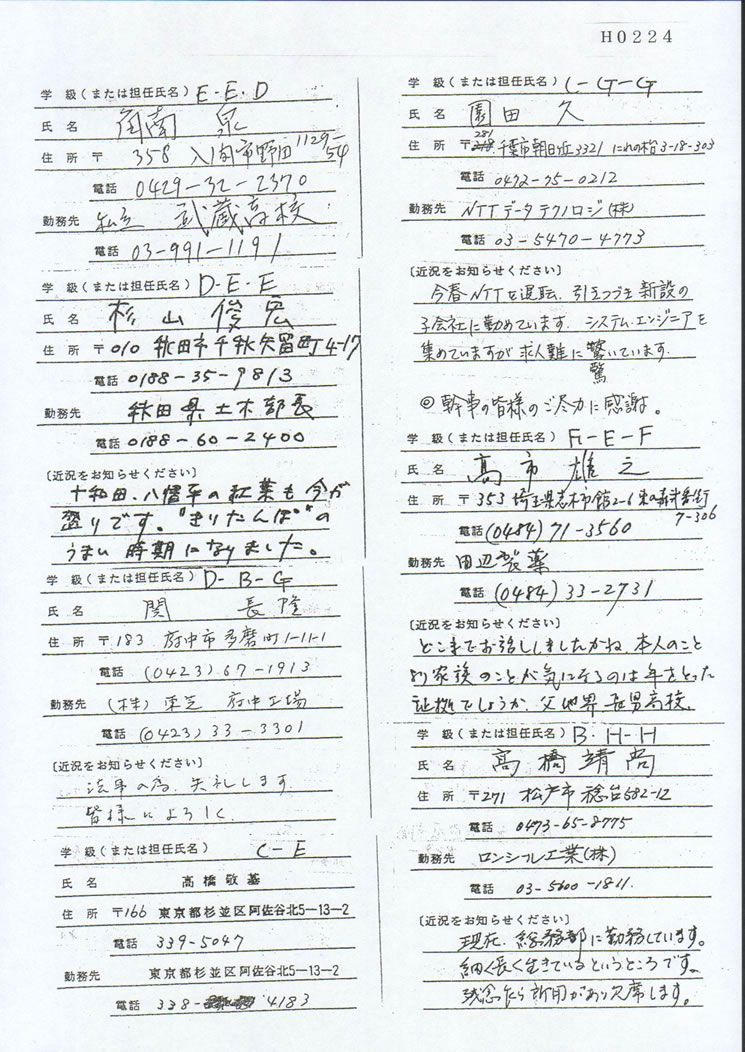 H0224
学 級(または担任氏名) E-E-D
氏 名 南 泉
住 所 〒 358 入間市野田 1129-54
電話 0429-32-2370
勤務先 私立 武蔵高校
電話 03-991-1191
学 級(または担任氏名) D-E-E
氏 名 杉山 俊宏
住 所 〒010 秋田市千秋矢留町4-17
電話 0188-35-9813
勤務先 秋田県土木部長
電話 0188-60-2400
〔近況をお知らせください〕
十和田、八幡平の紅葉も今が
盛りです。"きりたんぽ"の
うまい時期になりました。
学 級(または担任氏名) D-B-G
氏 名 関 長隆
住 所 〒183 府中市多磨町1-11-1
電話 (0423)67-1913
勤務先 (株)東芝 府中工場
電話 (0423)33-3301
〔近況をお知らせください〕
法事の為、失礼します.
皆様によろしく.
学 級(または担任氏名) C-E
氏 名 高橋敬基
住 所 〒166 東京都杉並区阿佐谷北5―13―2
電話 339-5047
勤務先 東京都杉並区阿佐谷北5―13―2
電話 338- 4183
学 級(または担任氏名) C-G-G
氏 名 園田 久
住 所 〒281 千葉市朝日ヶ丘3321 にれの台3-18-303
電話 0472-75-0212
勤務先 NTTデータテクノロジ(株)
電話 03-5470-4773
〔近況をお知らせください〕
今春NTTを退転、引きつづき新設の
子会社に勤めています. システム・エンジニアを
集めていますが求人難に驚いています.
驚
◎幹事の皆様のご尽力に感謝。
学 級(または担任氏名) F-E-F
氏 名 高市 雄之
住 所 〒353 埼玉県志木市館2-6 東の森弐番街
7-306
電話 (0484)71-3560
勤務先 田辺製薬
電話 (0484)33-2731
〔近況をお知らせください〕
どこまでお話ししましたかね、本人のこと
より家族のことが気になるのは年をとった
証拠でしょうか、父他界 長男高校.
学 級(または担任氏名) B-H-H
氏 名 高橋靖尚
住 所 〒271 松戸市稔台582-12
電話 0473-65-8775
勤務先 ロンシール工業(株)
電話 03-5600-1811.
〔近況をお知らせください〕
現在、総務部に勤務しています。
細く長く生きているというところです。
残念ながら所用があり欠席します。